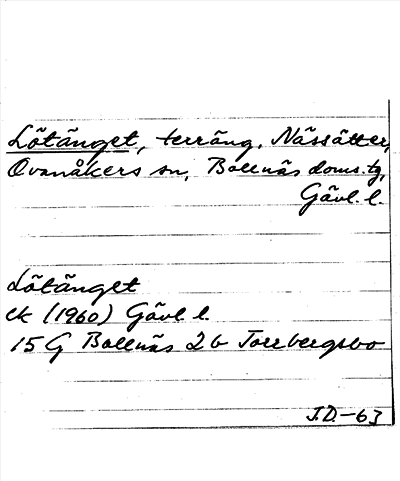 Lötänget, terräng, Nässätter,
Ovanåkers sn, Bollnäs doms.tg,
Gävl. l.
Lötänget
ek (1960) Gävl l.
15 G Bollnäs 2b Torrbergsbo
J.D.-63